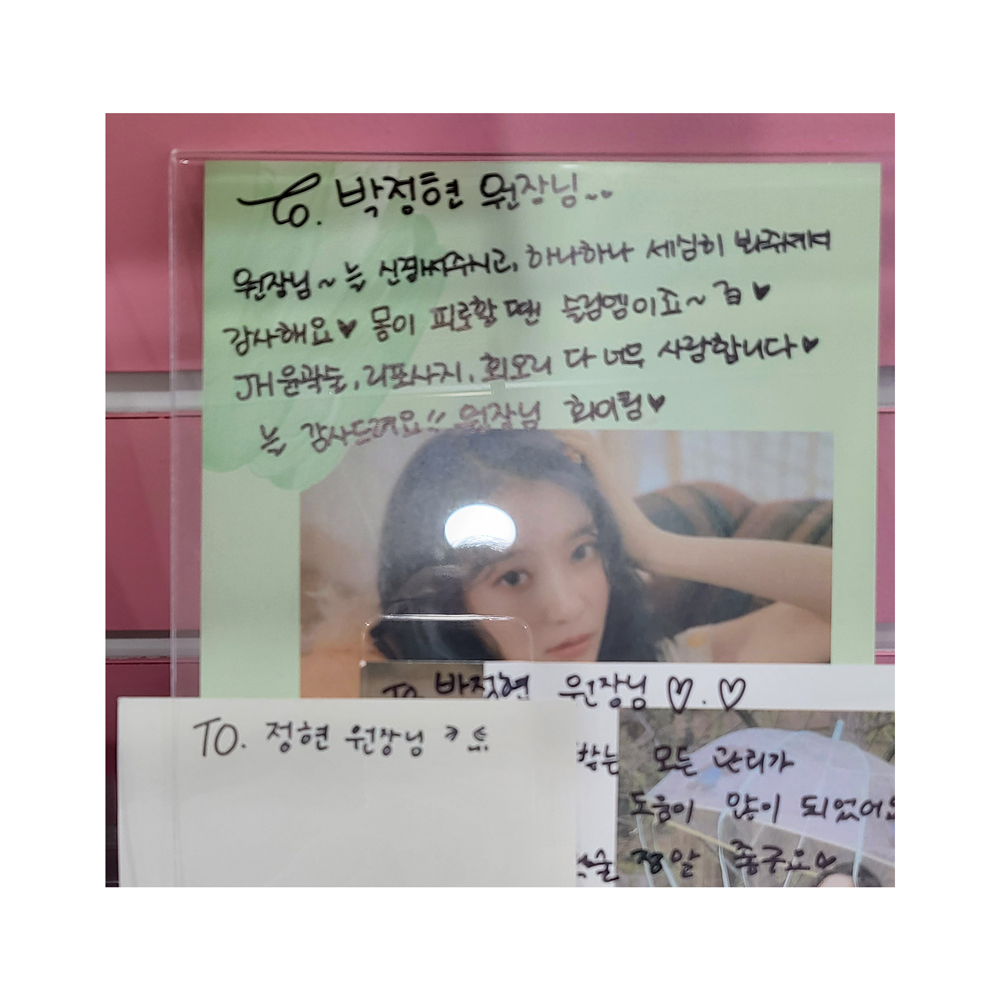 To. 박정현 원장님~
원장님~ 늘 신경써주시고, 하나하나 세심히 봐주셔서
감사해요♥ 몸이 피로할 땐 슬림엠이죠~ ♥
JH윤곽술, 리포사지, 회오리 다 너무 사랑합니다♥
늘 감사드려요!! 원장님 화이팅♥
To 박정현 원장님 ♡.♡
받는 모든 관리가
도움이 많이 되었어요
술 정말 좋구요♡
TO. 정현 원장님